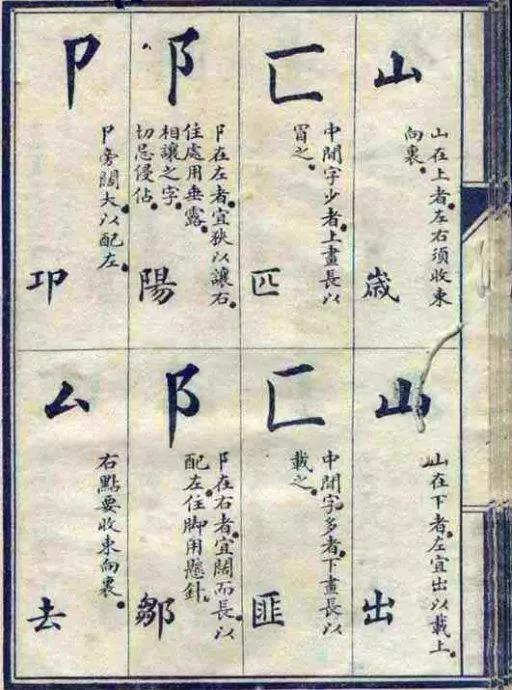 山
山在上者左右須收束
向裏
歳
匚
中間字少者上畫長以
冒之
匹
阝
阝在左者宜狹以讓右
住處用垂露
相讓之字
切忌侵佔
陽
卩
卩旁闊大以配左
卭
山
山在下者左宜出以載上
出
匚
中間字多者下畫長以
載之
匪
阝
阝在右者宜闊而長以
配左住脚用懸針
鄒
厶
右點要收束向裏
去